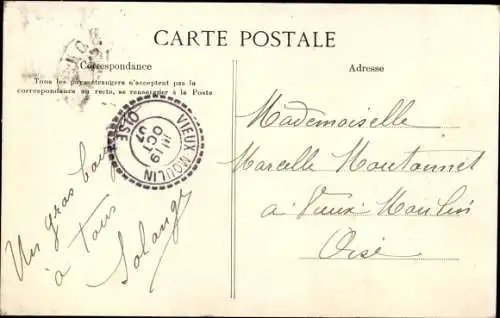 CARTE POSTALE
Correspondance
Tous les pays étrangers n'acceptent pas la
correspondance au recto, se renseigner à la Poste
Adresse
VIEUX-MOULIN
OISE
19
OCT
07
Un gros baiser
à tous
Solange
Mademoiselle
Marcelle Moutonnet
à Vieux Moulin
Oise